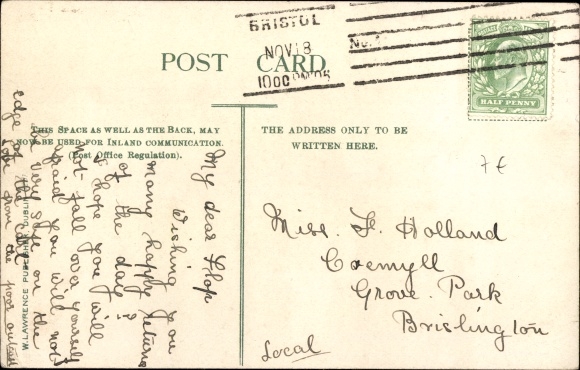 BRISTOL
NOV 18
10 00 PM 05
No. 1
POSTAGE
HALF PENNY
POST CARD
THIS SPACE AS WELL AS THE BACK, MAY
NOW BE USED FOR INLAND COMMUNICATION.
(Post Office Regulation).
THE ADDRESS ONLY TO BE
WRITTEN HERE.
7 €
My dear Flop
Wishing you
many happy returns
of the day?
I hope you will
not fall over yourself
afraid you will not
be very safe on the
edge of the
love from the poor outcast
W. LAWRENCE PUBLISHER DUBLIN
Miss. F. Holland
Coemyll
Grove. Park
Brislington
Local